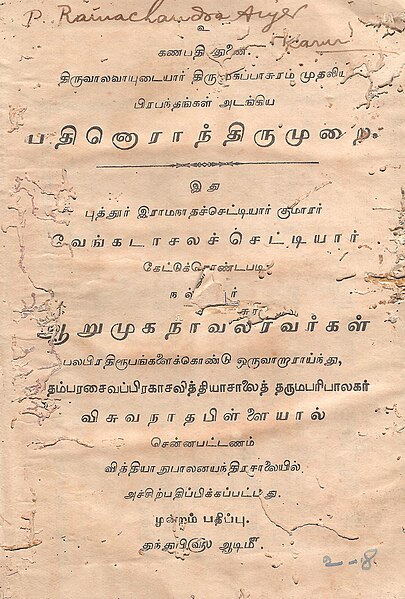 P. Ramachandra Aiyer
Karur
உ
கணபதி துணை.
திருவாலவாயுடையார் திருமுகப்பாசுரம் முதலிய
பிரபந்தங்கள் அடங்கிய
பதினொராந்திருமுறை.
இது
புத்தூர் இராமநாதச்செட்டியார் குமாரர்
வேங்கடாசலச்செட்டியார்
கேட்டுக்கொண்டபடி
ஆறுமுகநாவலரவர்கள்
பலபிரதிரூபங்களைக்கொண்டு ஒருவாறாராய்ந்து,
தம்பரசைவப்பிரகாசவித்தியாசாலைத் தருமபரிபாலகர்
விசுவநாதபிள்ளையால்
சென்னபட்டணம்
வித்தியாநுபாலனயந்திரசாலையில்
அச்சிற்பதிப்பிக்கப்பட்டது.
மூன்றாம் பதிப்பு.
துந்துபிவருஷ ஆடிமீ.
2-8